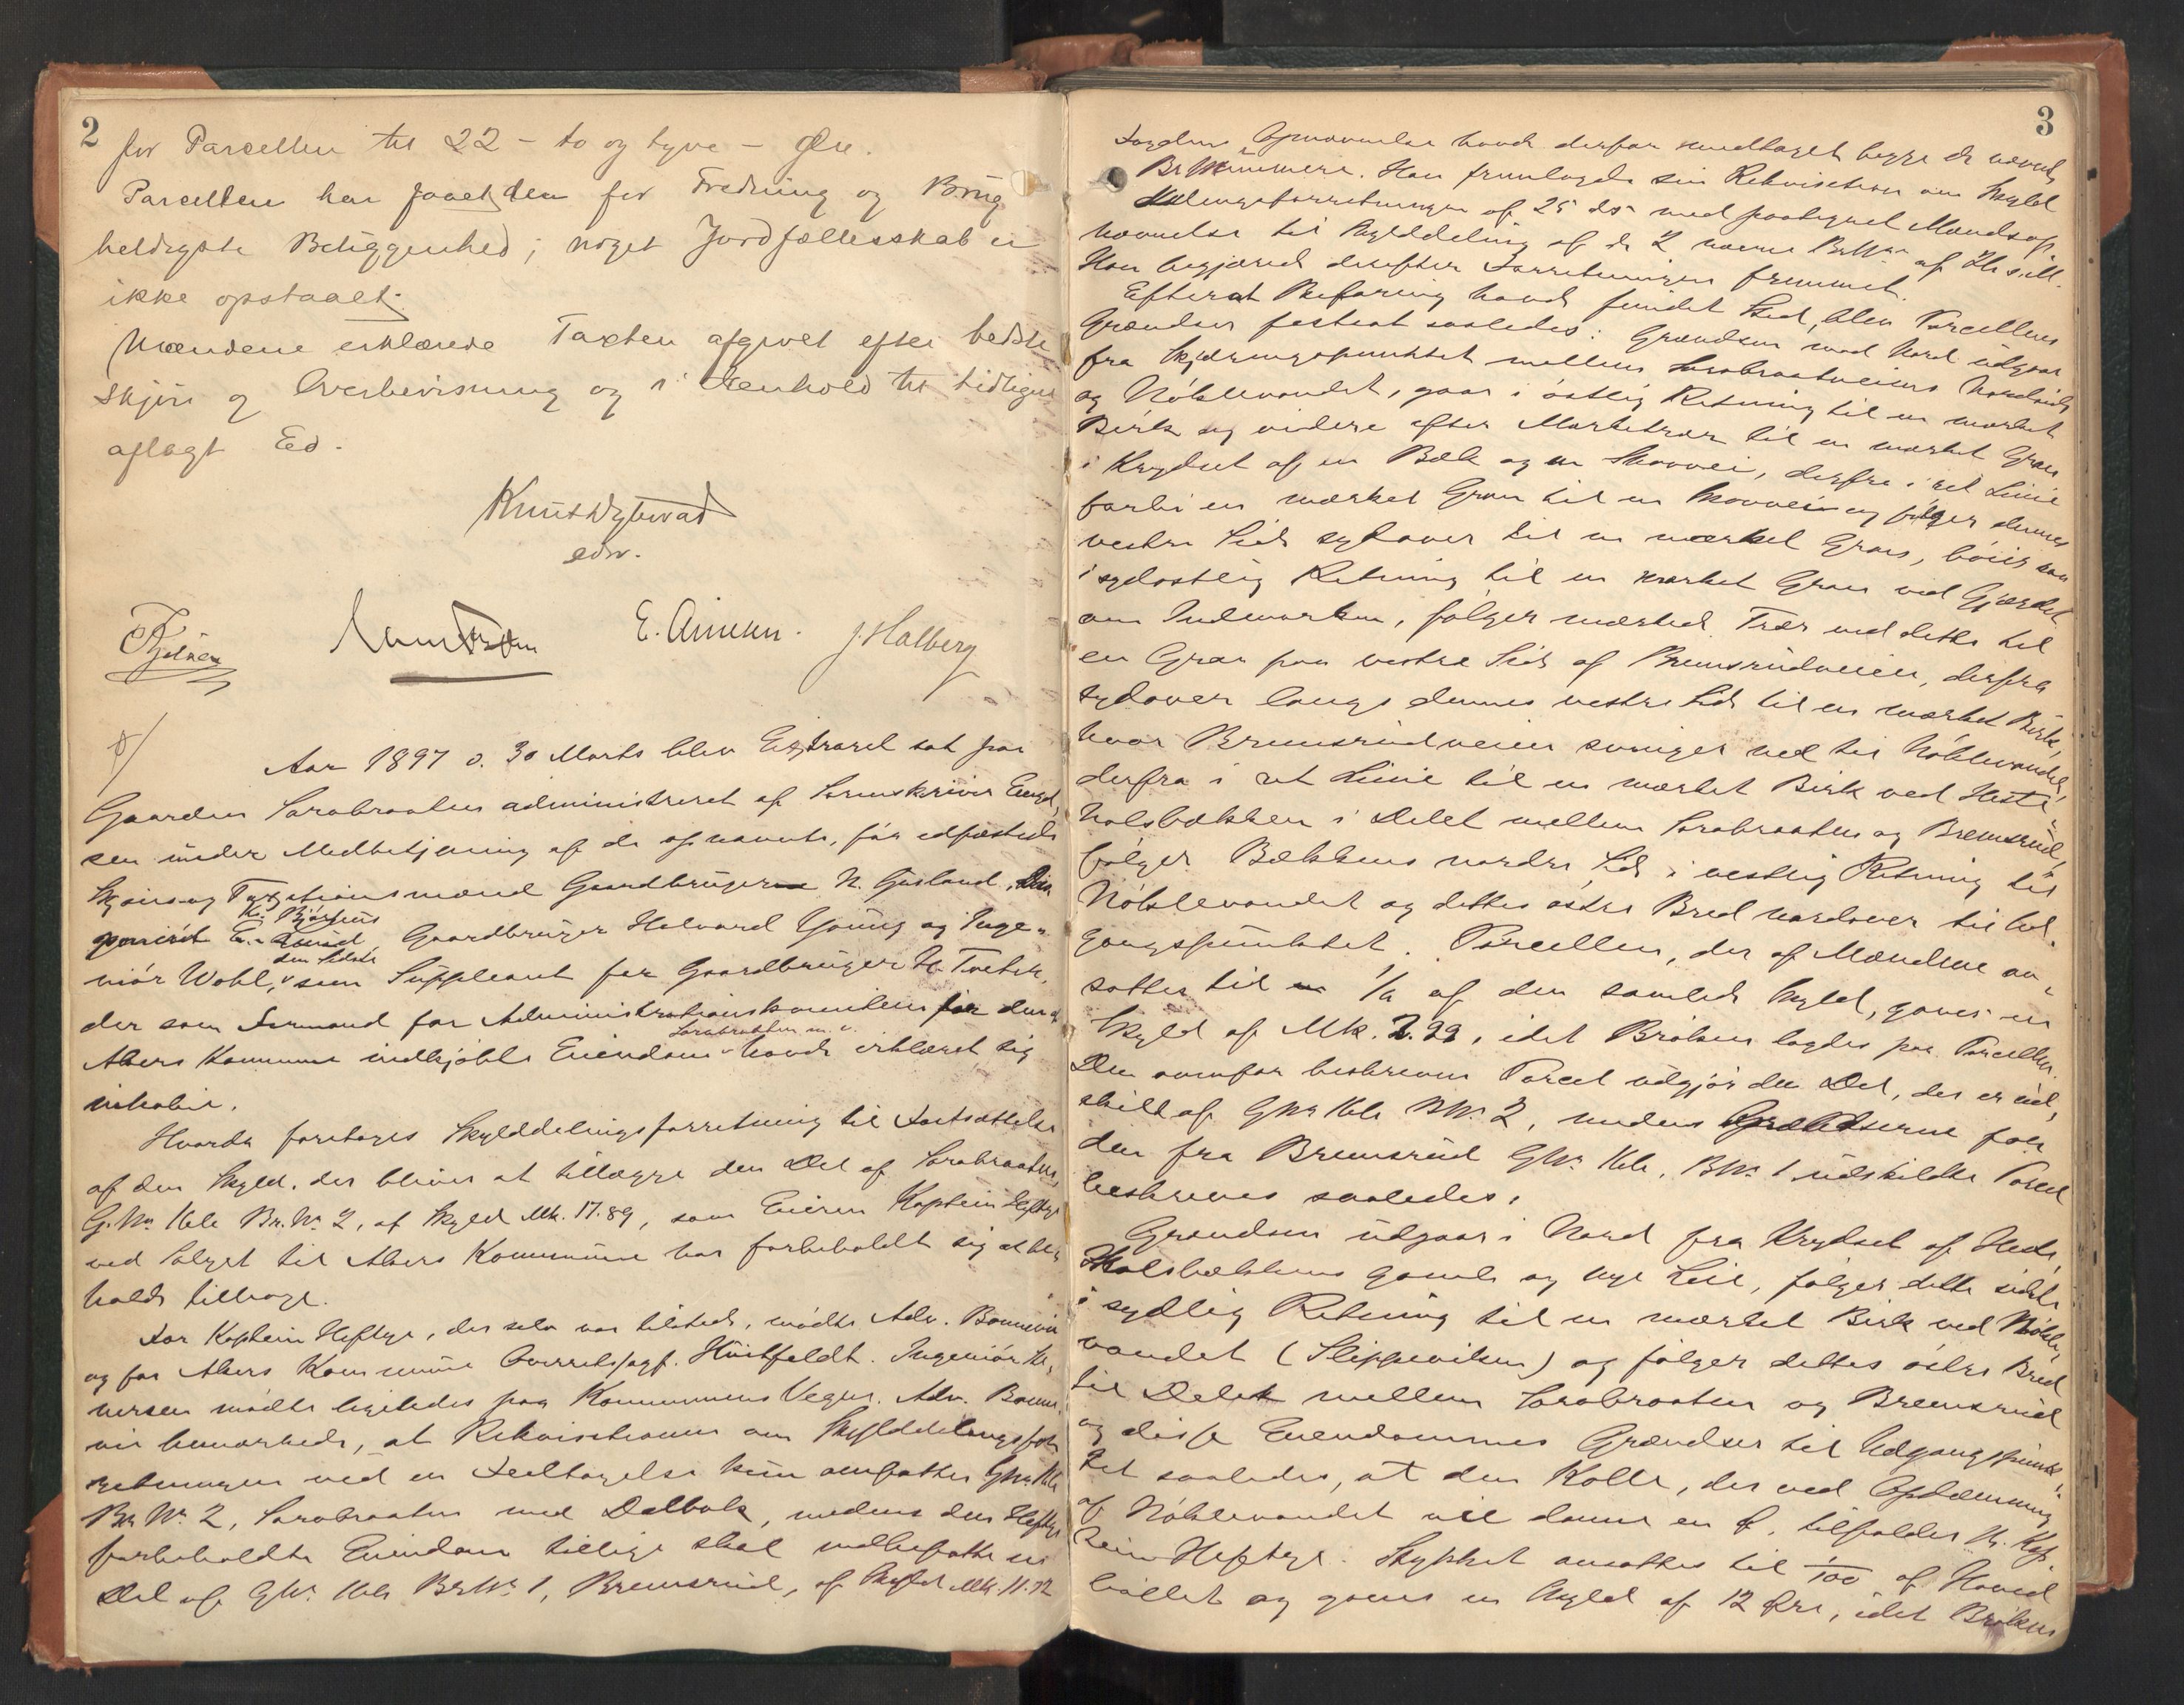 2
for Parcellen til 22 - to og tyve - Øre.
Parcellen har faaet den for Fredning og Brug
heldigste Beliggenhed; noget Jordfællesskab er
ikke opstaaet.
Mændene erklærede Taxten afgivet efter bedste
Skjøn og Overbevisning og i Henhold til tidligere
aflagt Ed.
edsv.
E. Amundsen. J. Halberg
Aar 1897 d. 30 Marts blev Extraret sat paa
Gaarden Sarabraaten administreret af Sorenskriver Engel,
sen under Medbetjening af de opnævnte, før edfæstede
Skjøns og Taxationsmænd Gaardbruger N. Gusland, Dis
ponent Gaardbruger Halvard Young og Inge-
den Sidste
niør Wohl, som Suppleant for Gaardbruger H. Tveter,
der som Formand for Administrationskomiteen for den af
Sarabraaten m. v.
Akers Kommune indkjøbte Eiendom havde erklæret sig
inhabil.
Hvorda foretoges Skylddelingsforretning til Fastsættelse
af den Skyld, der bliver at tillægge den Del af Sarabraaten
G. No. 161 Br. No. 2, af Skyld Mk. 17.89, som Eieren Kaptein Heftye
ved Salget til Akers Kommune har forbeholdt sig at be-
holde tilbage.
For Kaptein Heftye, der selv var tilstede, mødte Adv. Bonnevie
og for Akers Kommune Overretssagf. Huitfeldt. Ingeniør
mødte ligeledes paa Kommunens Vegne. Adv. Bonne-
vie bemærkede, at Rekvisitionen om Skylddelingsfor-
retningen ved en Feiltagelse kun omfatter GNo. 161
Br. No. 2, Sarabraaten med Dalbak, medens den Heftye
forbeholdte Eiendom tillige skal indbefatte en
Del af GNo. 161 BrNo. 1, Bremsrud, af Skyld Mk. 11.72
3
Fogdens Opnævnelse havde derfor medtaget begge de nævnte
Br.Nummere. Han fremlagde sin Rekvisition om Skyld
delingsforretningen af 25 ds. med paategnet Mandsop-
nævnelse til Skylddeling af de 2 nævnte BrNr.
Han begjærede derefter Forretningen fremmet.
Efterat Befaring havde fundet Sted, blev Parcellens
Grændser fastsat saaledes: Grændsen mod Nord udgaar
fra Skjæringspunktet mellem Sarabraatveiens Nordside
og Nøklevandet, gaar i østlig Retning til en mærket
Birk og videre efter Mærketrær til en mærket Gran
i Krydset af en Bæk og en Skovvei, derfra i ret Linie
forbi en mærket Gran til en Skovvei og følger dennes
vestre Side sydover til en mærket Gran, bøier saa
i sydostlig Retning til en mærket Gran ved Gjærdet
om Indmarken, følger mærkede Trær ved dette til
en Gran paa vestre Side af Bremsrudveien, derfra
sydover langs dennes vestre Side til en mærket Birk,
hvor Bremsrudveien svinger ned til Nøklevandet,
derfra i ret Linie til en mærket Birk ved Heste-
holsbækken i Delet mellem Sarabraaten og Bremsrud,
følger Bækkens nordre Side i vestlig Retning til
Nøklevandet og dettes østre Bred nordover til Ud-
gangspunktet. Parcellen, der af Mændene an-
sattes til 1/6 af den samlede Skyld, gaves en
Skyld af Mk. 2.99, idet Brøken lagdes paa Parcellen.
Den ovenfor beskrevne Parcel udgjør den Del, der er ud,
skilt af GNr 161 BNr. 2, medens Grændserne for
den fra Bremsrud GNr. 161, BNr. 1 udskildte Parcel
beskrives saaledes:
Grændsen udgaar i Nord fra Krydset af Heste,
holsbækkens gamle og nye Leie, følger dette sidste
i sydlig Retning til en mærket Birk ved Nøkle,
vandet (Slippeviken) og følger dettes østre Bred
til Delet mellem Sarabraaten og Bremsrud
og disse Eiendommes Grændser til Udgangspunk-
tet saaledes, at den Kolle, der ved Opdæmning
af Nøklevandet vil danne en Ø, tilfalder Hr. Kap-
tein Heftye. Stykket ansattes til 1/100 af Hoved
bøllet og gaves en Skyld af 12 Øre, idet Brøken